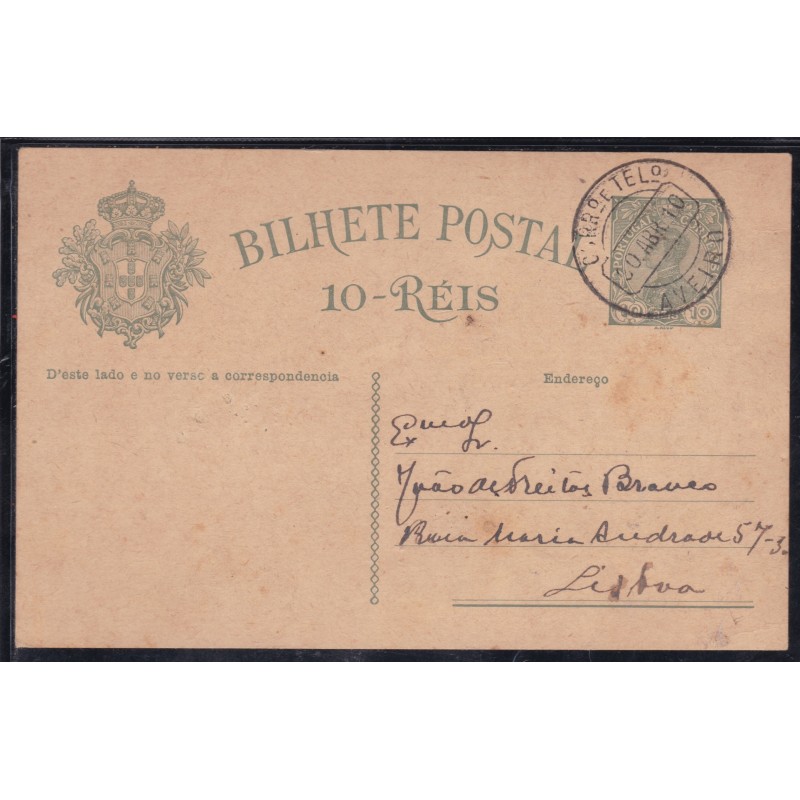 BILHETE POSTAL
10-RÉIS
CORRO E TELO
30 ABR 10
AVEIRO
PORTUGAL
10 10
D'este lado e no verso a correspondencia
Endereço
Exmo Sr.
João de Freitas Branco
Rua Maria Andrade 57-3.
Lisboa